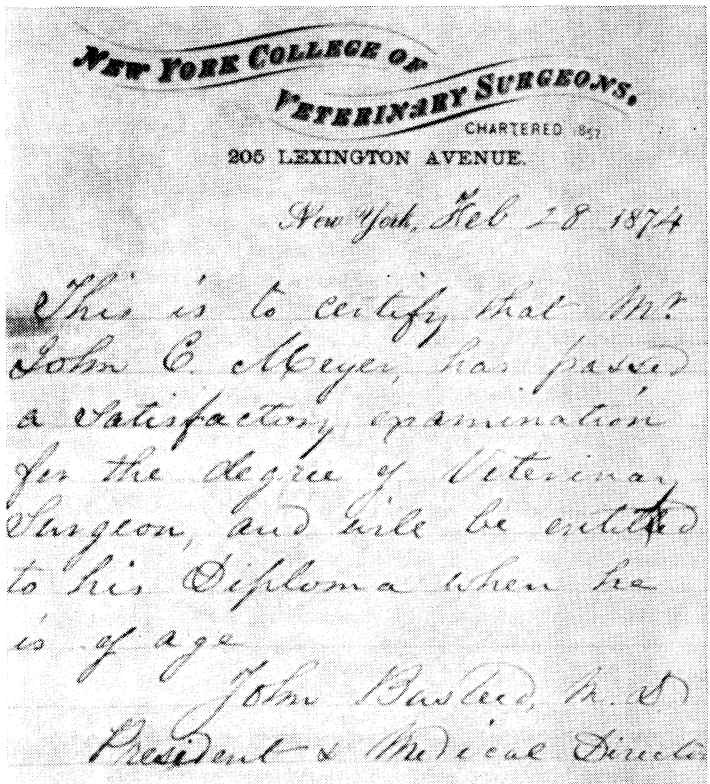 NEW YORK COLLEGE OF
VETERINARY SURGEONS,
CHARTERED 1857
205 LEXINGTON AVENUE.
New York, Feb 28 1874
This is to certify that Mr
John C. Meyer, has passed
a satisfactory examination
for the degree of Veterinary
Surgeon, and will be entitled
to his Diploma when he
is of age
John Busteed, M. D
President & Medical Directo